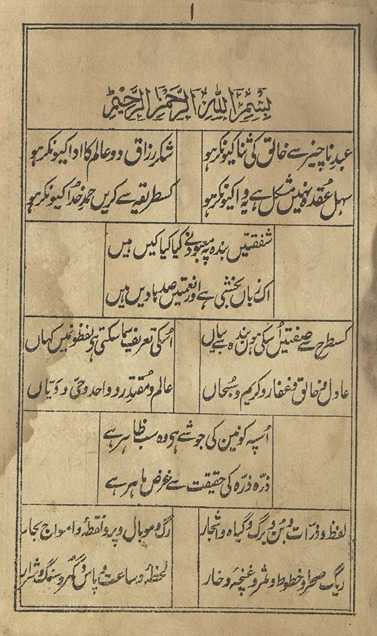 ۱
بسم اللہ الرحمن الرحیم
عبد ناچیز سے خالق کی ثنا کیونکر ہو
شکر رزاق دو عالم کا ادا کیونکر ہو
سہل عقدہ نہیں مشکل ہے یہ وا کیونکر ہو
کسطریقہ سے کریں حمد خدا کیونکر ہو
شفقتیں بندہ پہ معبود نے کیا کیا کیں ہیں
اک زباں بخشی ہے اور نعمتیں صدہا دیں ہیں
کسطرح سے صفتیں اسکی ہوں بندہ سے بیاں
اسکی تعریف سما سکتی ہے لفظو نمیں کہاں
عادل و خالق و غفار و کریم و سبحاں
عالم و مقتدر و واحد و حی و دیاں
اسپہ کونین کی جو شے ہے وہ سب ظاہر ہے
ذرہ ذرہ کی حقیقت سے غرض ماہر ہے
لفظ و ذرات و بن و برگ و گیاہ و اشجار
رگ و مو بال و پر و نقطہ و امواج بحار
ریگ صحرا و خطوط و ثمر و غنچہ و خار
لحظہ و ساعت و پاس و گہر و سنگ و شرار